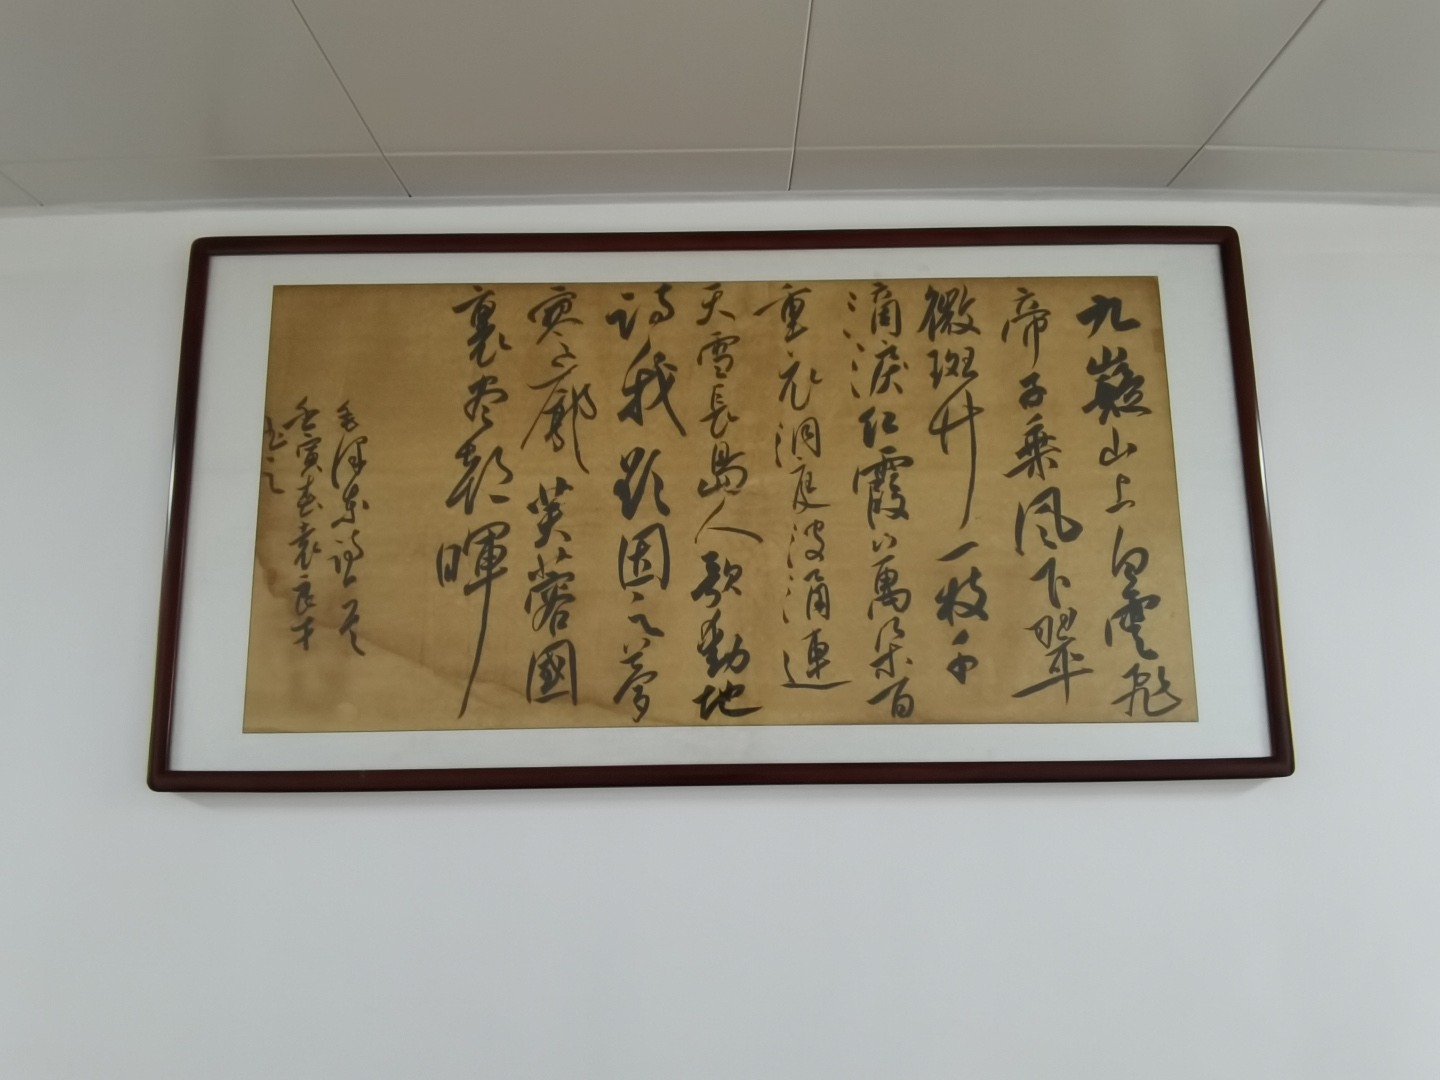 九嶷山上白雲飛
帝子乘風下翠
微斑竹一枝千
滴淚紅霞萬朵百
重衣洞庭波涌連
天雪長島人歌動地
詩我欲因之夢
寥廓芙蓉國
裏盡朝暉
毛澤東詩一首
壬寅春袁良才
書之